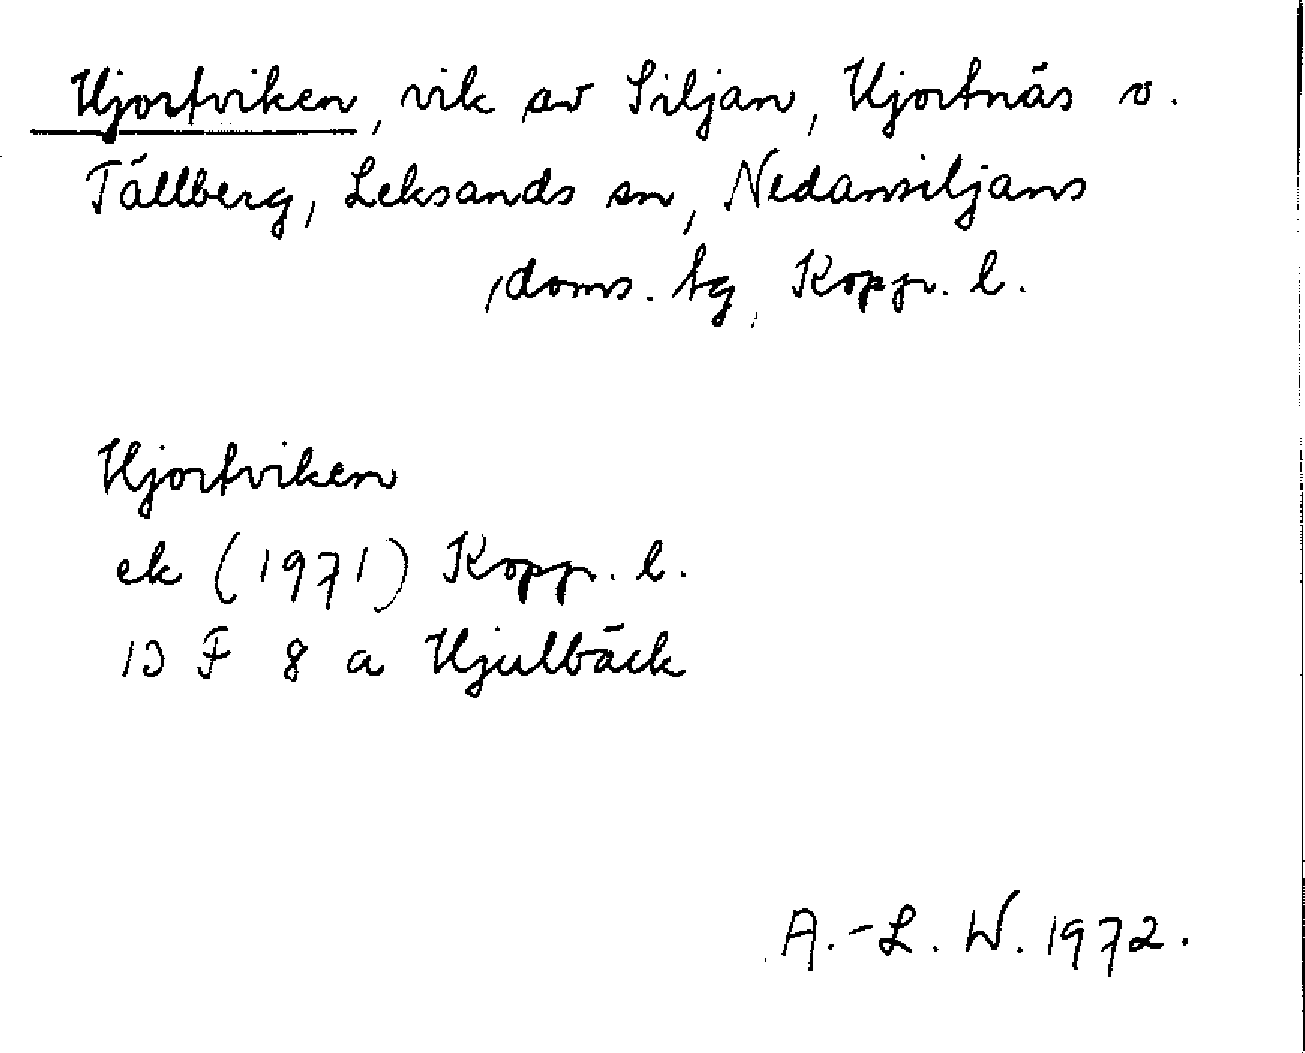 Hjortviken, vik av Siljan, Hjortnäs o.
Tällberg, Leksands sn, Nedansiljans
doms. tg, Kopp. l.
Hjortviken
ek (1971) Kopp. l.
13 F 8 a Hjulbäck
A.-L. W. 1972.